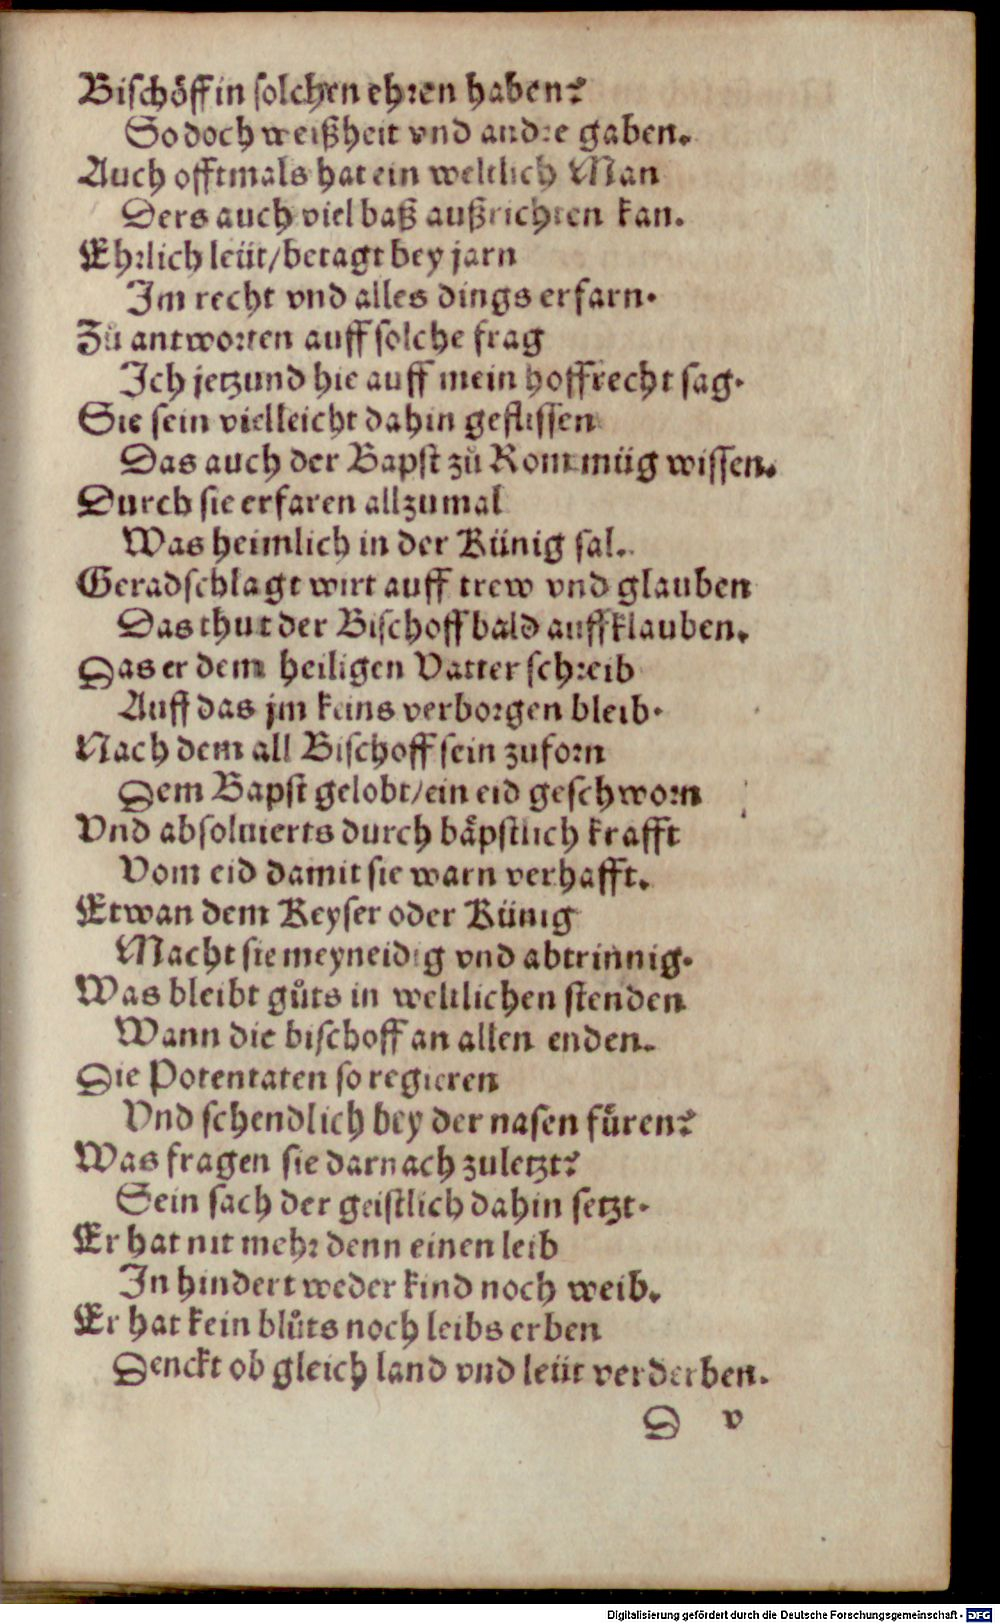 Bischöff in solchen ehren haben?
So doch weißheit vnd andre gaben.
Auch offtmals hat ein weltlich Man
Ders auch viel baß außrichten kan.
Ehrlich leüt/betagt bey jarn
Im recht vnd alles dings erfarn.
Zů antworten auff solche frag
Ich jetzund hie auff mein hoffrecht sag.
Sie sein vielleicht dahin geflissen
Das auch der Bapst zů Rom müg wissen.
Durch sie erfaren allzumal
Was heimlich in der Künig sal.
Geradschlagt wirt auff trew vnd glauben
Das thut der Bischoff bald auffklauben.
Das er dem heiligen Vatter schreib
Auff das jm keins verborgen bleib.
Nach dem all Bischoff sein zuforn
Dem Bapst gelobt/ein eid geschworn
Vnd absoluierts durch bäpstlich krafft
Vom eid damit sie warn verhafft.
Etwan dem Keyser oder Künig
Macht sie meyneidig vnd abtrinnig.
Was bleibt gůts in weltlichen stenden
Wann die bischoff an allen enden.
Die Potentaten so regieren
Vnd schendlich bey der nasen füren?
Was fragen sie darnach zuletzt?
Sein sach der geistlich dahin setzt.
Er hat nit mehr denn einen leib
In hindert weder kind noch weib.
Er hat kein blůts noch leibs erben
Denckt ob gleich land vnd leüt verderben.
D v
Digitalisierung gefördert durch die Deutsche Forschungsgemeinschaft - DFG